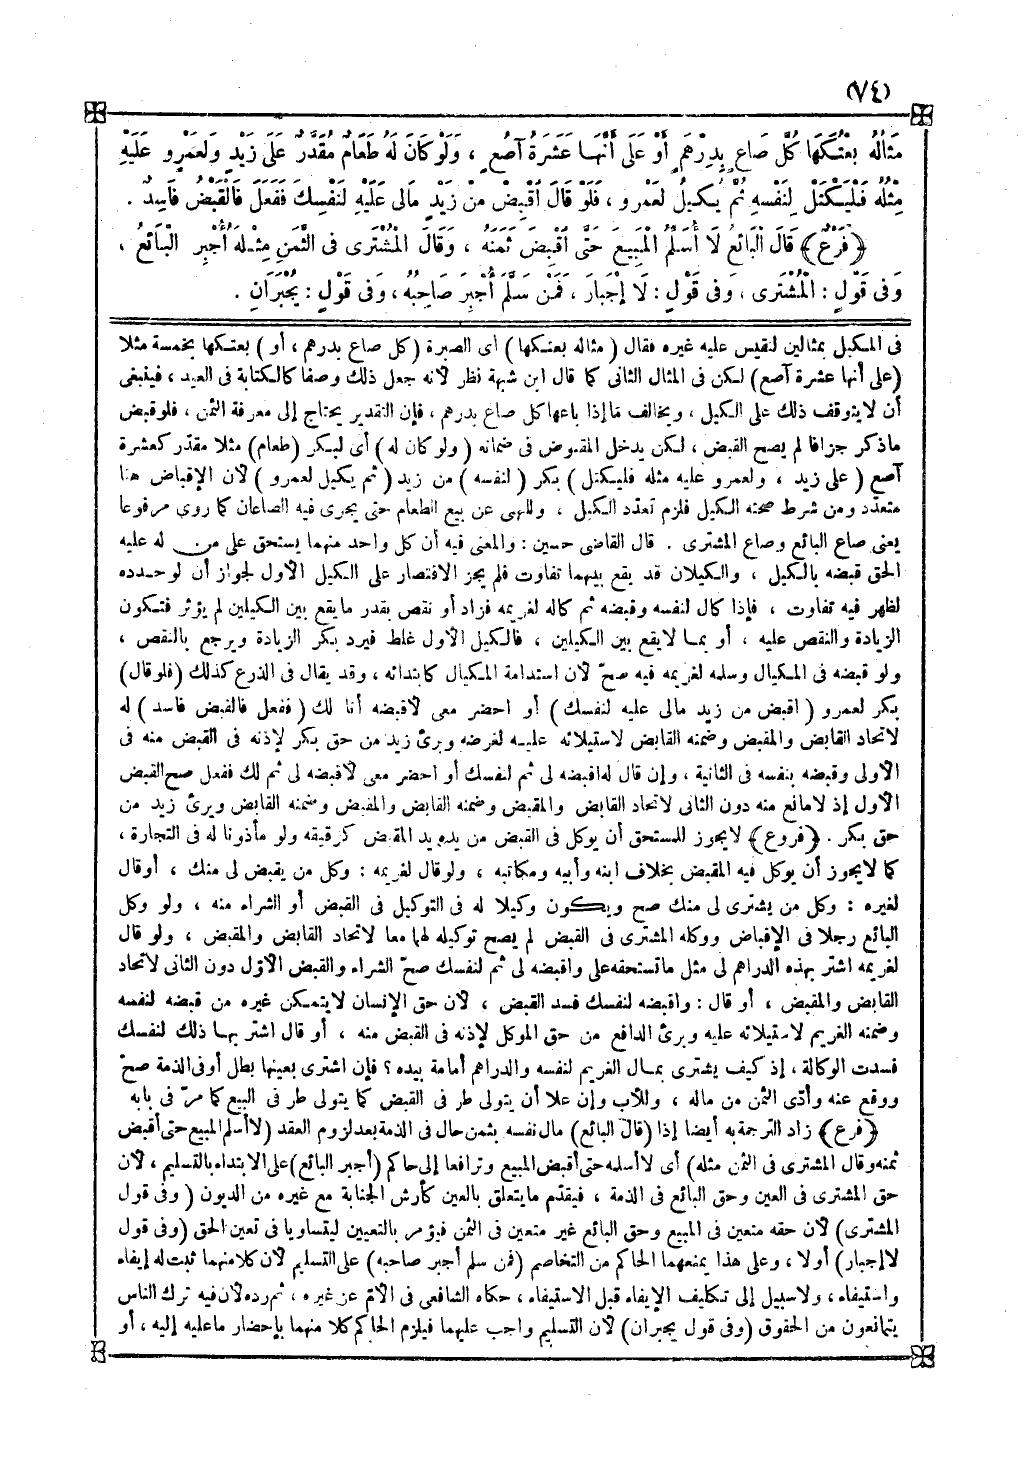 (٧٤)
مِثَالُهُ بِعْتُكَهَا كُلَّ صَاعٍ بِدِرْهَمٍ أَوْ عَلَى أَنَّهَا عَشَرَةُ آصُعٍ ، وَلَوْ كَانَ لَهُ طَعَامٌ مُقَدَّرٌ عَلَى زَيْدٍ وَلِعَمْرٍو عَلَيْهِ
مِثْلُهُ فَلْيَكْتَلْ لِنَفْسِهِ ثُمَّ يَكِيلُ لِعَمْرٍو ، فَلَوْ قَالَ اقْبِضْ مِنْ زَيْدٍ مَالِى عَلَيْهِ لِنَفْسِكَ فَفَعَلَ فَالْقَبْضُ فَاسِدٌ .
﴿ فَرْعٌ ﴾ قَالَ الْبَائِعُ لَا أُسَلِّمُ الْمَبِيعَ حَتَّى أَقْبِضَ ثَمَنَهُ ، وَقَالَ الْمُشْتَرِى فِى الثَّمَنِ مِثْلَهُ أُجْبِرَ الْبَائِعُ ،
وَفِى قَوْلٍ : الْمُشْتَرِى ، وَفِى قَوْلٍ : لَا إِجْبَارَ ، فَمَنْ سَلَّمَ أُجْبِرَ صَاحِبُهُ ، وَفِى قَوْلٍ : يُجْبَرَانِ .
فى المكيل بمثالين لنقيس عليه غيره فقال ( مثاله بعتكها ) أى الصبرة ( كل صاع بدرهم ، أو ) بعتكها بخمسة مثلا
( على أنها عشرة آصع ) لكن فى المثال الثانى كما قال ابن شهبة نظر لأنه جعل ذلك وصفا كالكتابة فى العبد ، فينبغى
أن لا يتوقف ذلك على الكيل ، ويخالف ما إذا باعها كل صاع بدرهم ، فإن التقدير يحتاج إلى معرفة الثمن ، فلو قبض
ماذكر جزافا لم يصح القبض ، لكن يدخل المقبوض فى ضمانه ( ولو كان له ) أى لبكر ( طعام ) مثلا مقدر كعشرة
آصع ( على زيد ، ولعمرو عليه مثله فليكتل ) بكر ( لنفسه ) من زيد ( ثم يكيل لعمرو ) لأن الإقباض هنا
متعدد ومن شرط صحته الكيل فلزم تعدد الكيل ، وللنهى عن بيع الطعام حتى يجرى فيه الصاعان كما روي مرفوعا
يعنى صاع البائع وصاع المشترى . قال القاضى حسين : والمعنى فيه أن كل واحد منهما يستحق على من له عليه
الحق قبضه بالكيل ، والكيلان قد يقع بينهما تفاوت فلم يجز الاقتصار على الكيل الأول لجواز أن لو حدده
لظهر فيه تفاوت ، فإذا كال لنفسه وقبضه ثم كاله لغريمه فزاد أو نقص بقدر ما يقع بين الكيلين لم يؤثر فتكون
الزيادة والنقص عليه ، أو بما لا يقع بين الكيلين ، فالكيل الأول غلط فيرد بكر الزيادة ويرجع بالنقص ،
ولو قبضه فى المكيال وسلمه لغريمه فيه صحّ لأن استدامة المكيال كابتدائه ، وقد يقال فى الذرع كذلك ( فلو قال )
بكر لعمرو ( اقبض من زيد مالى عليه لنفسك ) أو احضر معى لأقبضه أنا لك ( ففعل فالقبض فاسد ) له
لاتحاد القابض والمقبض وضمنه القابض لاستيلائه عليه لغرضه وبرئ زيد من حق بكر لإذنه فى القبض منه فى
الأولى وقبضه بنفسه فى الثانية ، وإن قال له اقبضه لى ثم لنفسك أو احضر معى لأقبضه لى ثم لك ففعل صح القبض
الأول إذ لا مانع منه دون الثانى لاتحاد القابض والمقبض وضمنه القابض والمقبض وضمنه القابض وبرئ زيد من
حق بكر . ﴿ فروع ﴾ لا يجوز للمستحق أن يوكل فى القبض من يده يد المقبض كرقيقه ولو مأذونا له فى التجارة ،
كما لا يجوز أن يوكل فيه المقبض بخلاف ابنه وأبيه ومكاتبه ، ولو قال لغريمه : وكل من يقبض لى منك ، أو قال
لغيره : وكل من يشترى لى منك صح ويكون وكيلا له فى التوكيل فى القبض أو الشراء منه ، ولو وكل
البائع رجلا فى الإقباض ووكله المشترى فى القبض لم يصح توكيله لهما معا لاتحاد القابض والمقبض ، ولو قال
لغريمه اشتر بهذه الدراهم لى مثل ما تستحقه على واقبضه لى ثم لنفسك صحّ الشراء والقبض الأوّل دون الثانى لاتحاد
القابض والمقبض ، أو قال : واقبضه لنفسك فسد القبض ، لأن حق الإنسان لا يتمكن غيره من قبضه لنفسه
وضمنه الغريم لاستيلائه عليه وبرئ الدافع من حق الموكل لإذنه فى القبض منه ، أو قال اشتر بها ذلك لنفسك
فسدت الوكالة ، إذ كيف يشترى بمال الغريم لنفسه والدراهم أمانة بيده ؟ فإن اشترى بعينها بطل أو فى الذمة صحّ
ووقع عنه وأدّى الثمن من ماله ، وللأب وإن علا أن يتولى طرفى القبض كما يتولى طرفى البيع كما مرّ فى بابه
﴿ فرع ﴾ زاد الترجمة به أيضا إذا ( قال البائع ) مال نفسه بثمن حال فى الذمة بعد لزوم العقد ( لا أسلم المبيع حتى أقبض
ثمنه وقال المشترى فى الثمن مثله ) أى لا أسلمه حتى أقبض المبيع وترافعا إلى حاكم ( أجبر البائع ) على الابتداء بالتسليم ، لأن
حق المشترى فى العين وحق البائع فى الذمة ، فيقدّم ما يتعلق بالعين كأرش الجناية مع غيره من الديون ( وفى قول
المشترى ) لأن حقه متعين فى المبيع وحق البائع غير متعين فى الثمن فيؤمر بالتعيين ليتساويا فى تعين الحق ( وفى قول
لا إجبار ) أولا ، وعلى هذا يمنعهما الحاكم من التخاصم ( فمن سلم أجبر صاحبه ) على التسليم لأن كلا منهما ثبت له إيفاء
واستيفاء ، ولا سبيل إلى تكليف الإيفاء قبل الاستيفاء ، حكاه الشافعى فى الأم عن غيره ، ثم رده لأن فيه ترك الناس
يتمانعون من الحقوق ( وفى قول يجبران ) لأن التسليم واجب عليهما فيلزم الحاكم كلا منهما بإحضار ما عليه إليه ، أو